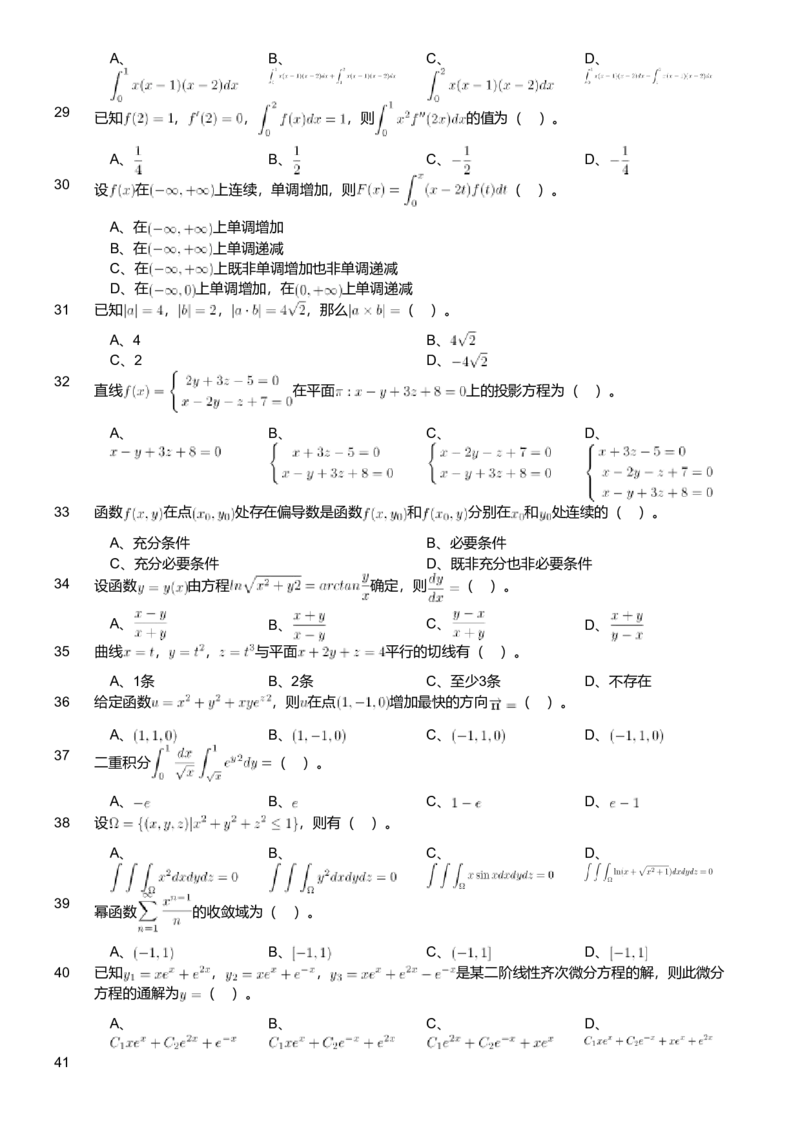 A、 B、 C、 D、
∫₀¹ x(x−1)(x−2)dx ∫₀² x(x−1)(x−2)dx
29 已知f(2) = 1，f′(2) = 0，∫₀² f(x)dx = 1，则∫₀¹ x²f″(2x)dx的值为（ ）。
A、1/4 B、1/2 C、−1/2 D、−1/4
30 设f(x)在(−∞, +∞)上连续，单调增加，则F(x) = ∫₀ˣ (x − 2t)f(t)dt（ ）。
A、在(−∞, +∞)上单调增加
B、在(−∞, +∞)上单调递减
C、在(−∞, +∞)上既非单调增加也非单调递减
D、在(−∞, 0)上单调增加，在(0, +∞)上单调递减
31 已知|a| = 4，|b| = 2，|a · b| = 4√2，那么|a × b| =（ ）。
A、4 B、4√2
C、2 D、−4√2
32 直线f(x) = { 2y + 3z − 5 = 0 x − 2y − z + 7 = 0 在平面π : x − y + 3z + 8 = 0上的投影方程为（ ）。
A、 B、 C、 D、
x − y + 3z + 8 = 0 { x + 3z − 5 = 0 x − y + 3z + 8 = 0 { x − 2y − z + 7 = 0 x − y + 3z + 8 = 0 { x + 3z − 5 = 0 x − 2y − z + 7 = 0 x − y + 3z + 8 = 0
33 函数f(x, y)在点(x₀, y₀)处存在偏导数是函数f(x, y₀)和f(x₀, y)分别在x₀和y₀处连续的（ ）。
A、充分条件 B、必要条件
C、充分必要条件 D、既非充分也非必要条件
34 设函数y = y(x)由方程ln√(x² + y2) = arctan y/x 确定，则dy/dx =（ ）。
A、(x − y)/(x + y) B、(x + y)/(x − y) C、(y − x)/(x + y) D、(x + y)/(y − x)
35 曲线x = t，y = t²，z = t³与平面x + 2y + z = 4平行的切线有（ ）。
A、1条 B、2条 C、至少3条 D、不存在
36 给定函数u = x² + y² + xye^z2，则u在点(1, −1, 0)增加最快的方向n⃗ =（ ）。
A、(1, 1, 0) B、(1, −1, 0) C、(−1, 1, 0) D、(−1, 1, 0)
37 二重积分∫₀¹ dx/√x ∫_√x^1 e^y2 dy =（ ）。
A、−e B、e C、1 − e D、e − 1
38 设Ω = {(x, y, z)|x² + y² + z² ≤ 1}，则有（ ）。
A、 B、 C、 D、
∫∫∫_Ω x²dxdydz = 0 ∫∫∫_Ω y²dxdydz = 0 ∫∫∫_Ω x sin xdxdydz = 0 ∫∫∫_Ω ln(x + √(x² + 1))dxdydz = 0
39 幂函数∑_{n=1}^∞ x^{n−1}/n 的收敛域为（ ）。
A、(−1, 1) B、[−1, 1) C、(−1, 1] D、[−1, 1]
40 已知y₁ = xeˣ + e²ˣ，y₂ = xeˣ + e⁻ˣ，y₃ = xeˣ + e²ˣ − e⁻ˣ是某二阶线性齐次微分方程的解，则此微分
方程的通解为y =（ ）。
A、 B、 C、 D、
C₁xeˣ + C₂e²ˣ + e⁻ˣ C₁xeˣ + C₂e⁻ˣ + e²ˣ C₁e²ˣ + C₂e⁻ˣ + xeˣ C₁xeˣ + C₂e⁻ˣ + xeˣ + e²ˣ
41